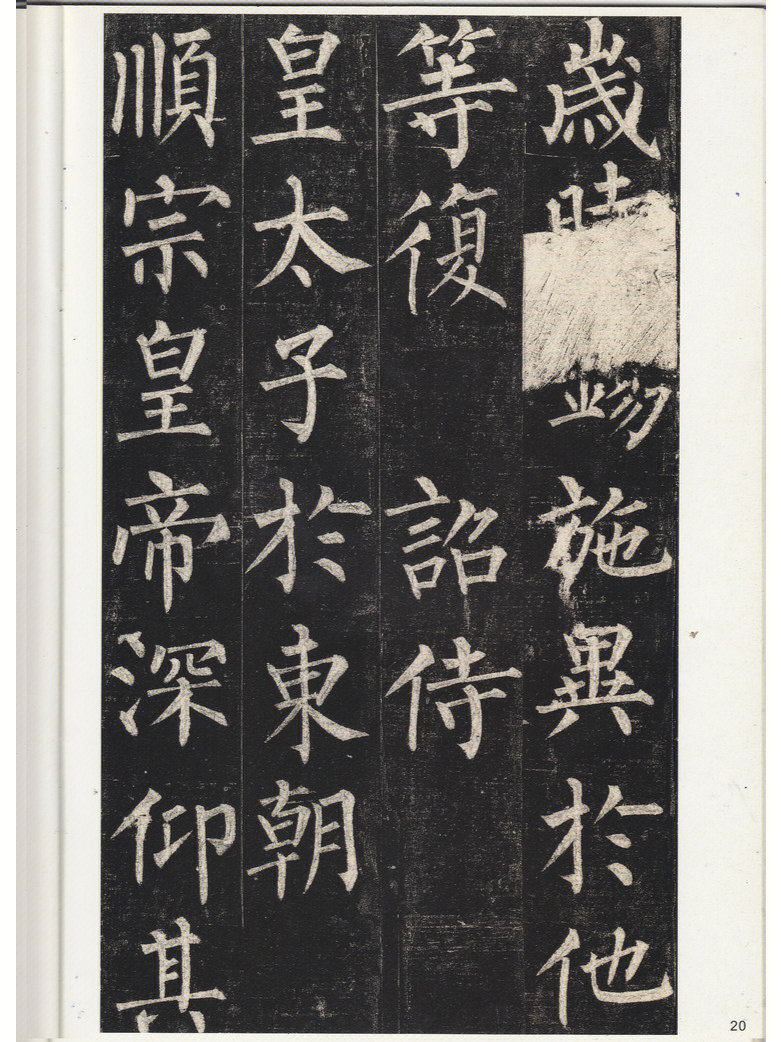 歲時施異於他
等復詔侍
皇太子於東朝
順宗皇帝深仰其
20